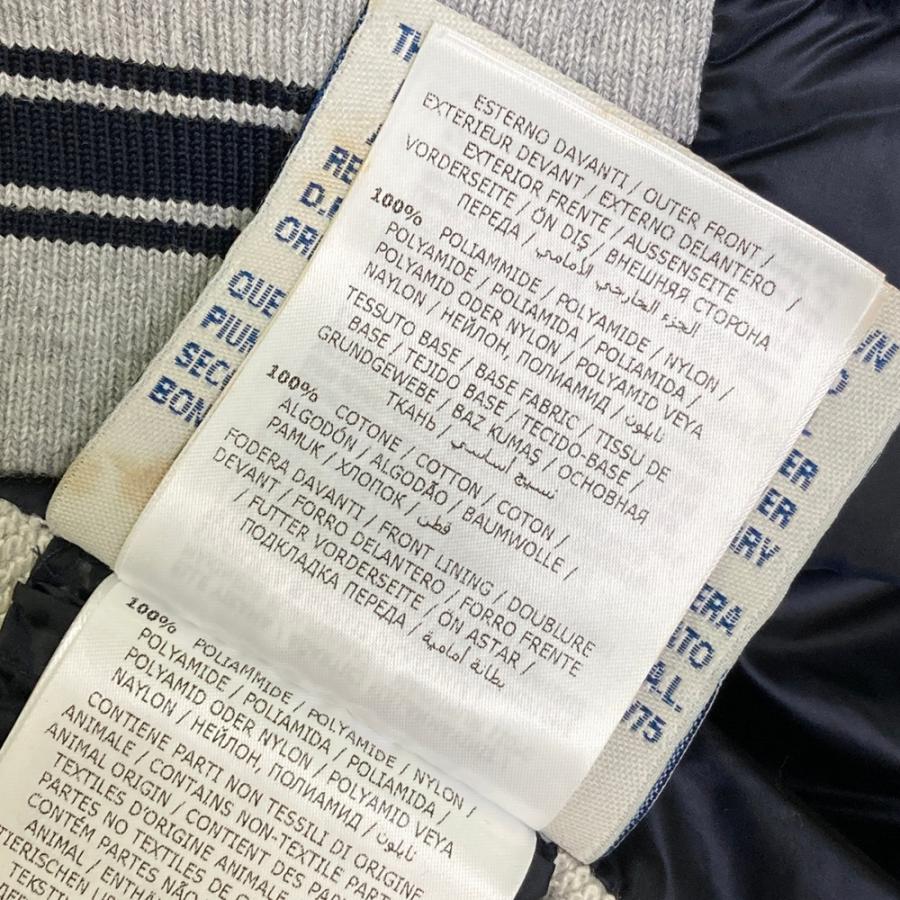 ESTERNO DAVANTI / OUTER FRONT /
EXTERIEUR DEVANT / EXTERNO DELANTERO /
EXTERIOR FRENTE / AUSSENSEITE
VORDERSEITE / ÖN DIŞ / ВНЕШНЯЯ СТОРОНА
ПЕРЕДА / الجزء الخارجي الأمامي
100% POLIAMMIDE / POLYAMIDE / NYLON /
POLYAMIDE / POLIAMIDA / POLIAMIDA /
POLYAMID ODER NYLON / POLYAMID VEYA
NAYLON / НЕЙЛОН, ПОЛИАМИД / نايلون
TESSUTO BASE / BASE FABRIC / TISSU DE
BASE / TEJIDO BASE / TECIDO-BASE /
GRUNDGEWEBE / BAZ KUMAŞ / ОСНОВНАЯ
ТКАНЬ / نسيج أساسي
100% COTONE / COTTON / COTON /
ALGODÓN / ALGODÃO / BAUMWOLLE /
PAMUK / ХЛОПОК / قطن
FODERA DAVANTI / FRONT LINING / DOUBLURE
DEVANT / FORRO DELANTERO / FORRO FRENTE
/ FUTTER VORDERSEITE / ÖN ASTAR /
ПОДКЛАДКА ПЕРЕДА / بطانة أمامية
100% POLIAMMIDE / POLYAMIDE / NYLON /
POLYAMIDE / POLIAMIDA / POLIAMIDA /
POLYAMID ODER NYLON / POLYAMID VEYA
NAYLON / НЕЙЛОН, ПОЛИАМИД / نايلون
CONTIENE PARTI NON TESSILI DI ORIGINE
ANIMALE / CONTAINS NON-TEXTILE PARTS
ANIMAL ORIGIN / CONTIENT DES PAR
TEXTILES D'ORIGINE ANIMALE
PARTES NO TEXTILES DE
CONTÉM PARTES NÃO
ANIMAL / ENTHÄ
TIERISCHEN
ТЕКСТИ
QUE
PIUM
SEC
BON
ERA
ITO
ALL